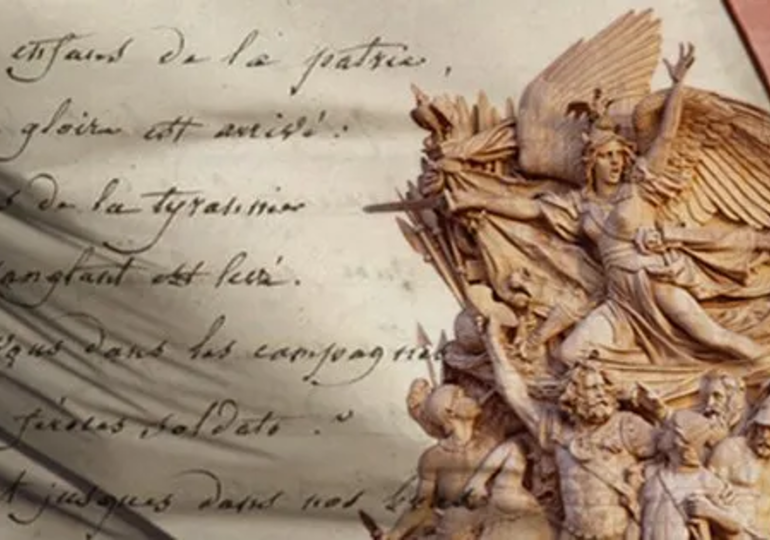 enfans de la patrie,
gloire est arrivé :
de la tyrannie
sanglant est levé.
dans les campagnes
féroces soldats ?
jusques dans nos bras